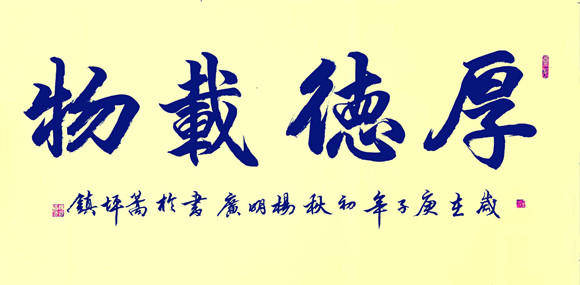 厚德載物
歲在庚子年初秋楊明廣書於蒿坪鎮